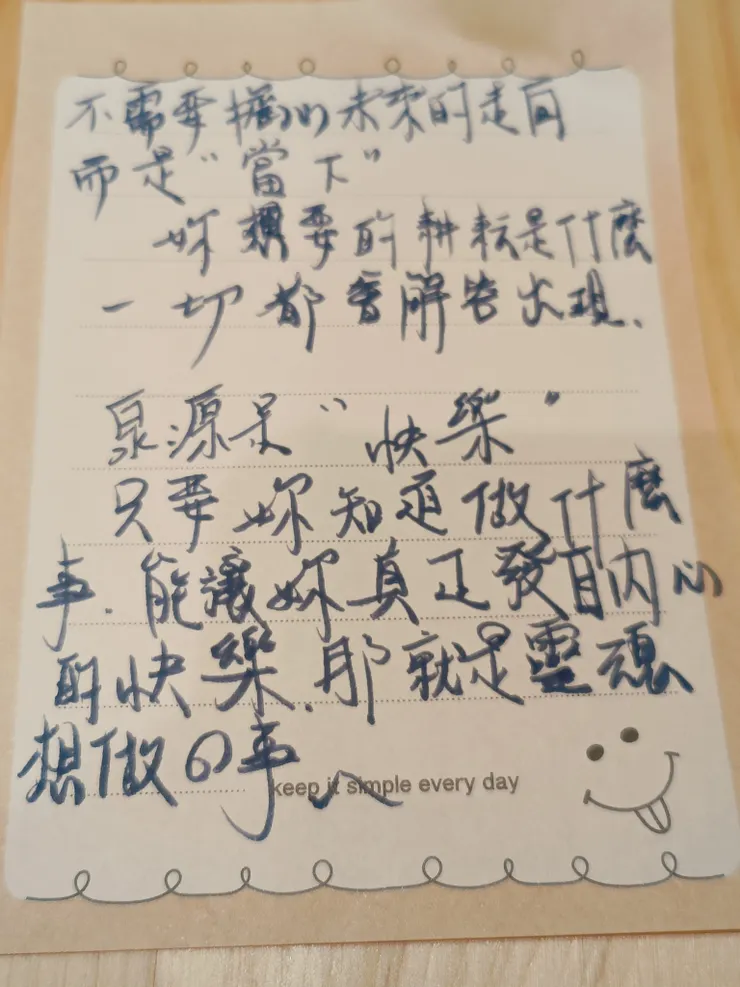 不需要擔心未來的走向
而是“當下”
妳想要的耕耘是什麼
一切都會解答出現.
泉源是“快樂”
只要妳知道做什麼
事.能讓妳真正發自內心
的快樂.那就是靈魂
想做的事
keep it simple every day